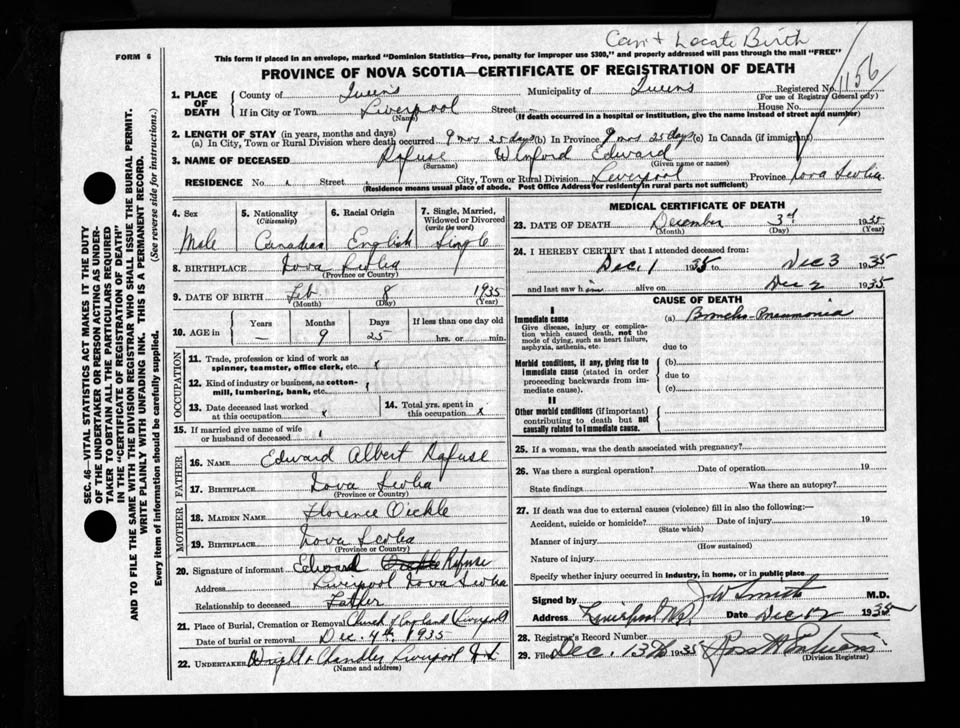 Can't Locate Birth
FORM 6
This form if placed in an envelope, marked "Dominion Statistics—Free, penalty for improper use $300," and properly addressed will pass through the mail "FREE"
PROVINCE OF NOVA SCOTIA—CERTIFICATE OF REGISTRATION OF DEATH
1156
1. PLACE OF DEATH
County of Queens Municipality of Queens Registered No.
(For use of Registrar General only)
If in City or Town Liverpool Street — House No.
(Name) (If death occurred in a hospital or institution, give the name instead of street and number)
2. LENGTH OF STAY (in years, months and days)
(a) In City, Town or Rural Division where death occurred 9 mos 25 days (b) In Province 9 mos 25 days (c) In Canada (if immigrant)
3. NAME OF DECEASED Rafuse Winford Edward
(Surname) (Given name or names)
RESIDENCE No. Street City, Town or Rural Division Liverpool Province Nova Scotia
(Residence means usual place of abode. Post Office Address for residents in rural parts not sufficient)
4. Sex Male
5. Nationality (Citizenship) Canadian
6. Racial Origin English
7. Single, Married, Widowed or Divorced (write the word) Single
8. BIRTHPLACE Nova Scotia
(Province or Country)
9. DATE OF BIRTH Feb 8 1935
(Month) (Day) (Year)
10. AGE in Years Months Days If less than one day old
— 9 25 hrs. or min.
OCCUPATION
11. Trade, profession or kind of work as spinner, teamster, office clerk, etc.
12. Kind of industry or business, as cotton-mill, lumbering, bank, etc.
13. Date deceased last worked at this occupation x
14. Total yrs. spent in this occupation x
15. If married give name of wife or husband of deceased
FATHER
16. NAME Edward Albert Rafuse
17. BIRTHPLACE Nova Scotia
(Province or Country)
MOTHER
18. MAIDEN NAME Florence Oickle
19. BIRTHPLACE Nova Scotia
(Province or Country)
20. Signature of informant Edward Rafuse
Address Liverpool Nova Scotia
Relationship to deceased Father
21. Place of Burial, Cremation or Removal Church of England Liverpool
Date of burial or removal Dec. 4th 1935
22. UNDERTAKER Wright & Chandler Liverpool N.S.
(Name and address)
MEDICAL CERTIFICATE OF DEATH
23. DATE OF DEATH December 3rd 1935
(Month) (Day) (Year)
24. I HEREBY CERTIFY that I attended deceased from:
Dec. 1 1935 to Dec 3 1935
and last saw him alive on Dec 2 1935
CAUSE OF DEATH
I
Immediate cause (a) Broncho-Pneumonia
Give disease, injury or complication which caused death, not the mode of dying, such as heart failure, asphyxia, asthenia, etc.
due to
Morbid conditions, if any, giving rise to immediate cause (stated in order proceeding backwards from immediate cause).
(b)
due to
(c)
II
Other morbid conditions (if important) contributing to death but not causally related to immediate cause.
25. If a woman, was the death associated with pregnancy?
26. Was there a surgical operation? Date of operation 19
State findings Was there an autopsy?
27. If death was due to external causes (violence) fill in also the following:—
Accident, suicide or homicide? Date of injury 19
(State which)
Manner of injury
(How sustained)
Nature of injury
Specify whether injury occurred in industry, in home, or in public place
Signed by J W Smith M.D.
Address Liverpool N.S. Date Dec 12 1935
28. Registrar's Record Number
29. Filed Dec. 13th 1935
(Division Registrar)
SEC. 46—VITAL STATISTICS ACT MAKES IT THE DUTY
OF THE UNDERTAKER OR PERSON ACTING AS UNDER-
TAKER TO OBTAIN ALL THE PARTICULARS REQUIRED
IN THE "CERTIFICATE OF REGISTRATION OF DEATH"
AND TO FILE THE SAME WITH THE DIVISION REGISTRAR WHO SHALL ISSUE THE BURIAL PERMIT.
WRITE PLAINLY WITH UNFADING INK. THIS IS A PERMANENT RECORD.
Every item of information should be carefully supplied. (See reverse side for instructions.)